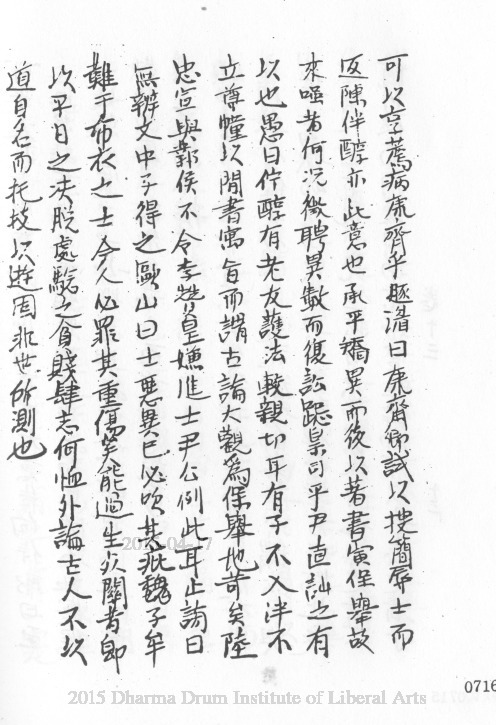 可以享薦病康齊乎豚湣曰康齊即試以搜簡辱士而
返陳伴醇亦此意也承平矯異而後以著書寅倖舉故
來嗢者何况徵聘異數而復訟跽臬司乎尹直訕之有
以也愚曰佇醇有老友護法較親切耳有子不入泮不
立尊幢以閒書寓旨而謂古論大觀為保舉地苛矣陸
忠宣與鄴侯不令李贊皇嫌進士尹公例此耳止謗曰
無辯文中子得之歐山曰士惡異己必吹其疵魏子牟
難于布衣之士今人必罪其重傷笑能過生死關者即
以平日之決脫處驗之貧賤肆志何恤外論古人不以
道自名而托技以遊固非世所測也
2015 Dharma Drum Institute of Liberal Arts
0716